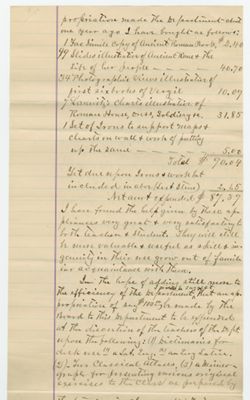 propriation made the Department about
one year ago I have bought as follows:
1 Fac Simile Copy of Ancient Roman Book, $ 2.40
49 Slides illustrative of Ancient Rome & the
life of her people — 40.70
34 Photographic Views illustrative of
first six books of Vergil 10.09
7 Charts illustrative of
Roman House, Dress, Soldiery &c. 31.85
1 Set of Irons to support maps &
charts on wall & work of putting
up the same — 5.00
Total $ 90.04
Yet due upon Irons & work (not
included in above) 2.65
Net am't expended $ 87.39
I have found the help given by these ap-
pliances very great & very satisfactory to
both teacher & students. They will still
be more valuable & useful as skill & in-
genuity in their use grow out of famil-
iar acquaintance with them.
In the hope of adding still more to
the efficiency of the Department, that an ap-
propriation of $100 be made by the
Board to this Department to be expended
at the discretion of the teacher of the Dept
upon the following: (1) Dictionaries for
desk use
(2) Two Classical Atlases, (3) a Mimeo-
graph for presenting various original
exercises to the Class as prepared by